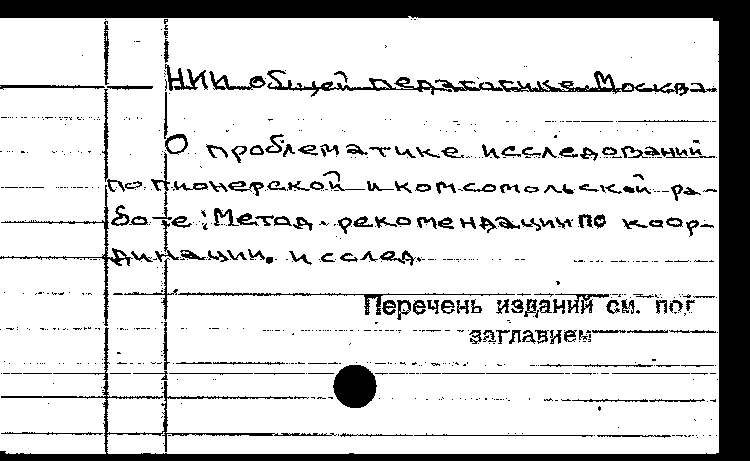 НИИ общей педагогике. Москва
О проблематике исследований
по пионерской и комсомольской ра-
боте: Метод. рекомендации по коор-
динации. исслед.
Перечень изданий см. под
заглавием